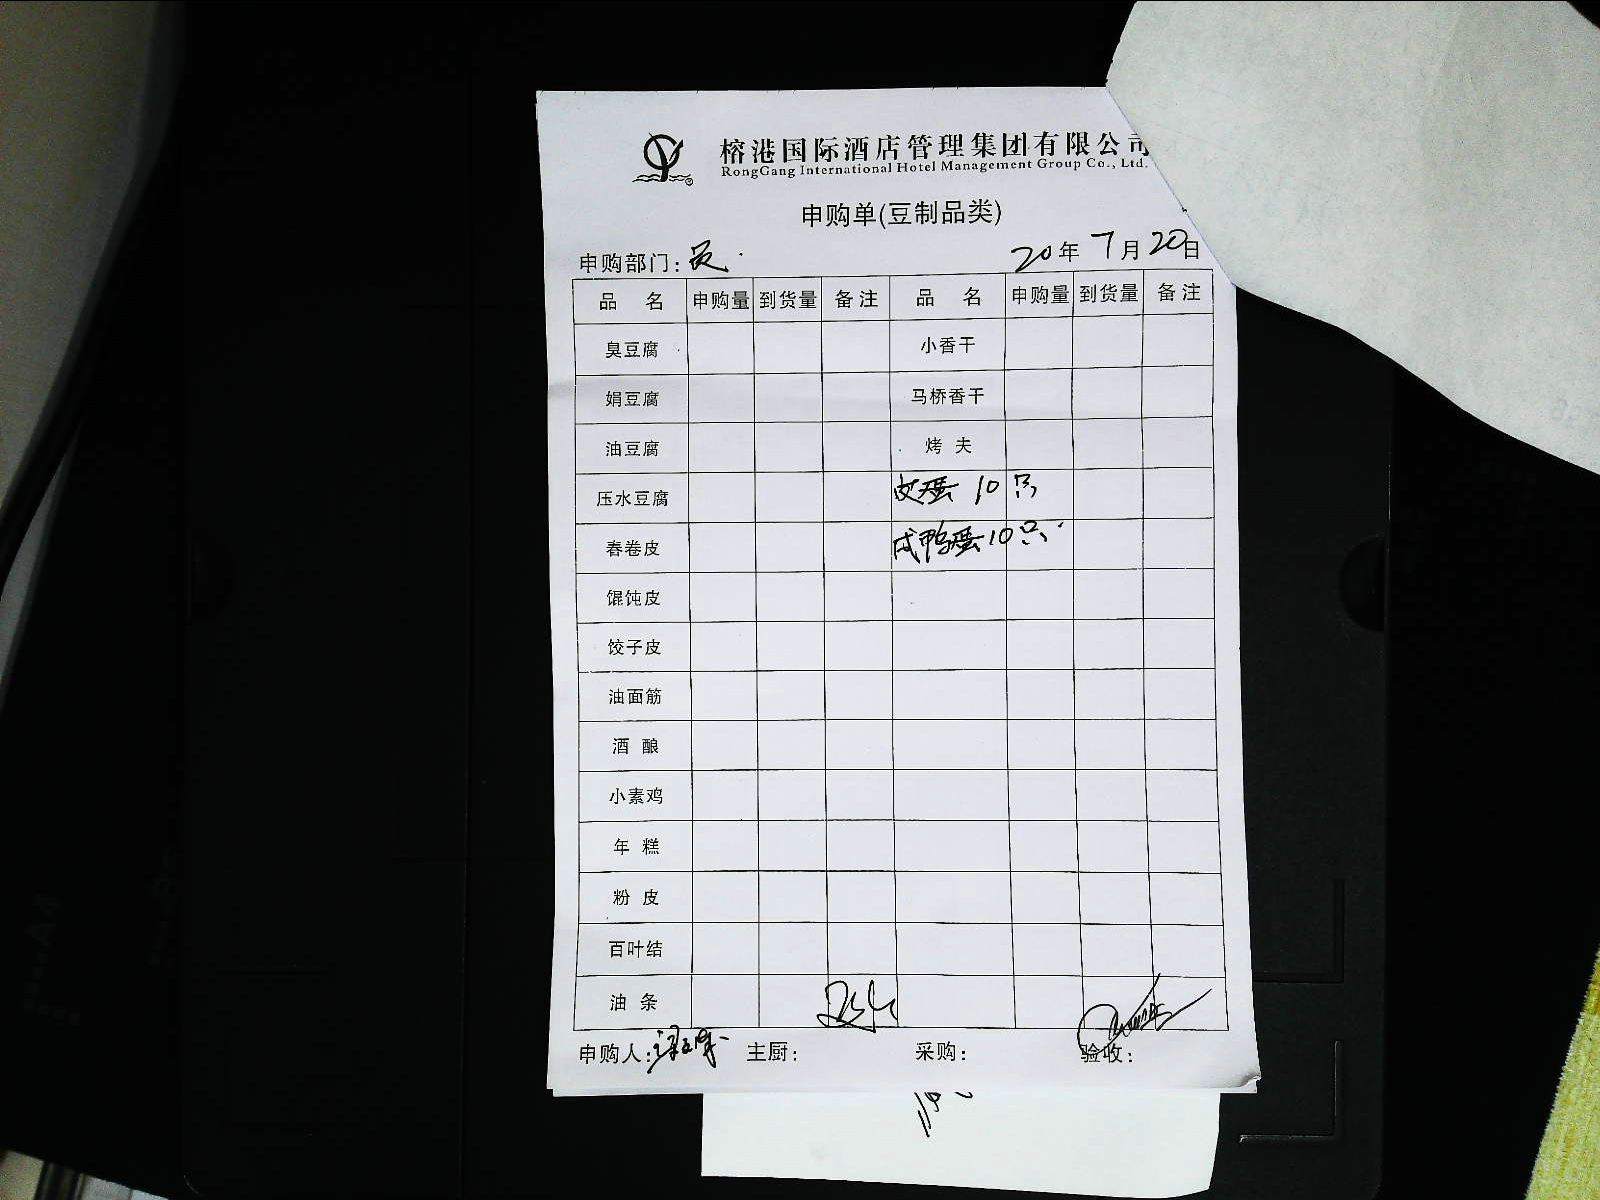 榕港国际酒店管理集团有限公司
RongGang International Hotel Management Group Co., Ltd.
申购单(豆制品类)
申购部门: 20年7月20日
品名 申购量 到货量 备注 品名 申购量 到货量 备注
臭豆腐 小香干
娟豆腐 马桥香干
油豆腐 烤夫
压水豆腐 皮蛋 10只
春卷皮 咸鸭蛋10只
馄饨皮
饺子皮
油面筋
酒酿
小素鸡
年糕
粉皮
百叶结
油条
申购人: 主厨: 采购: 验收: